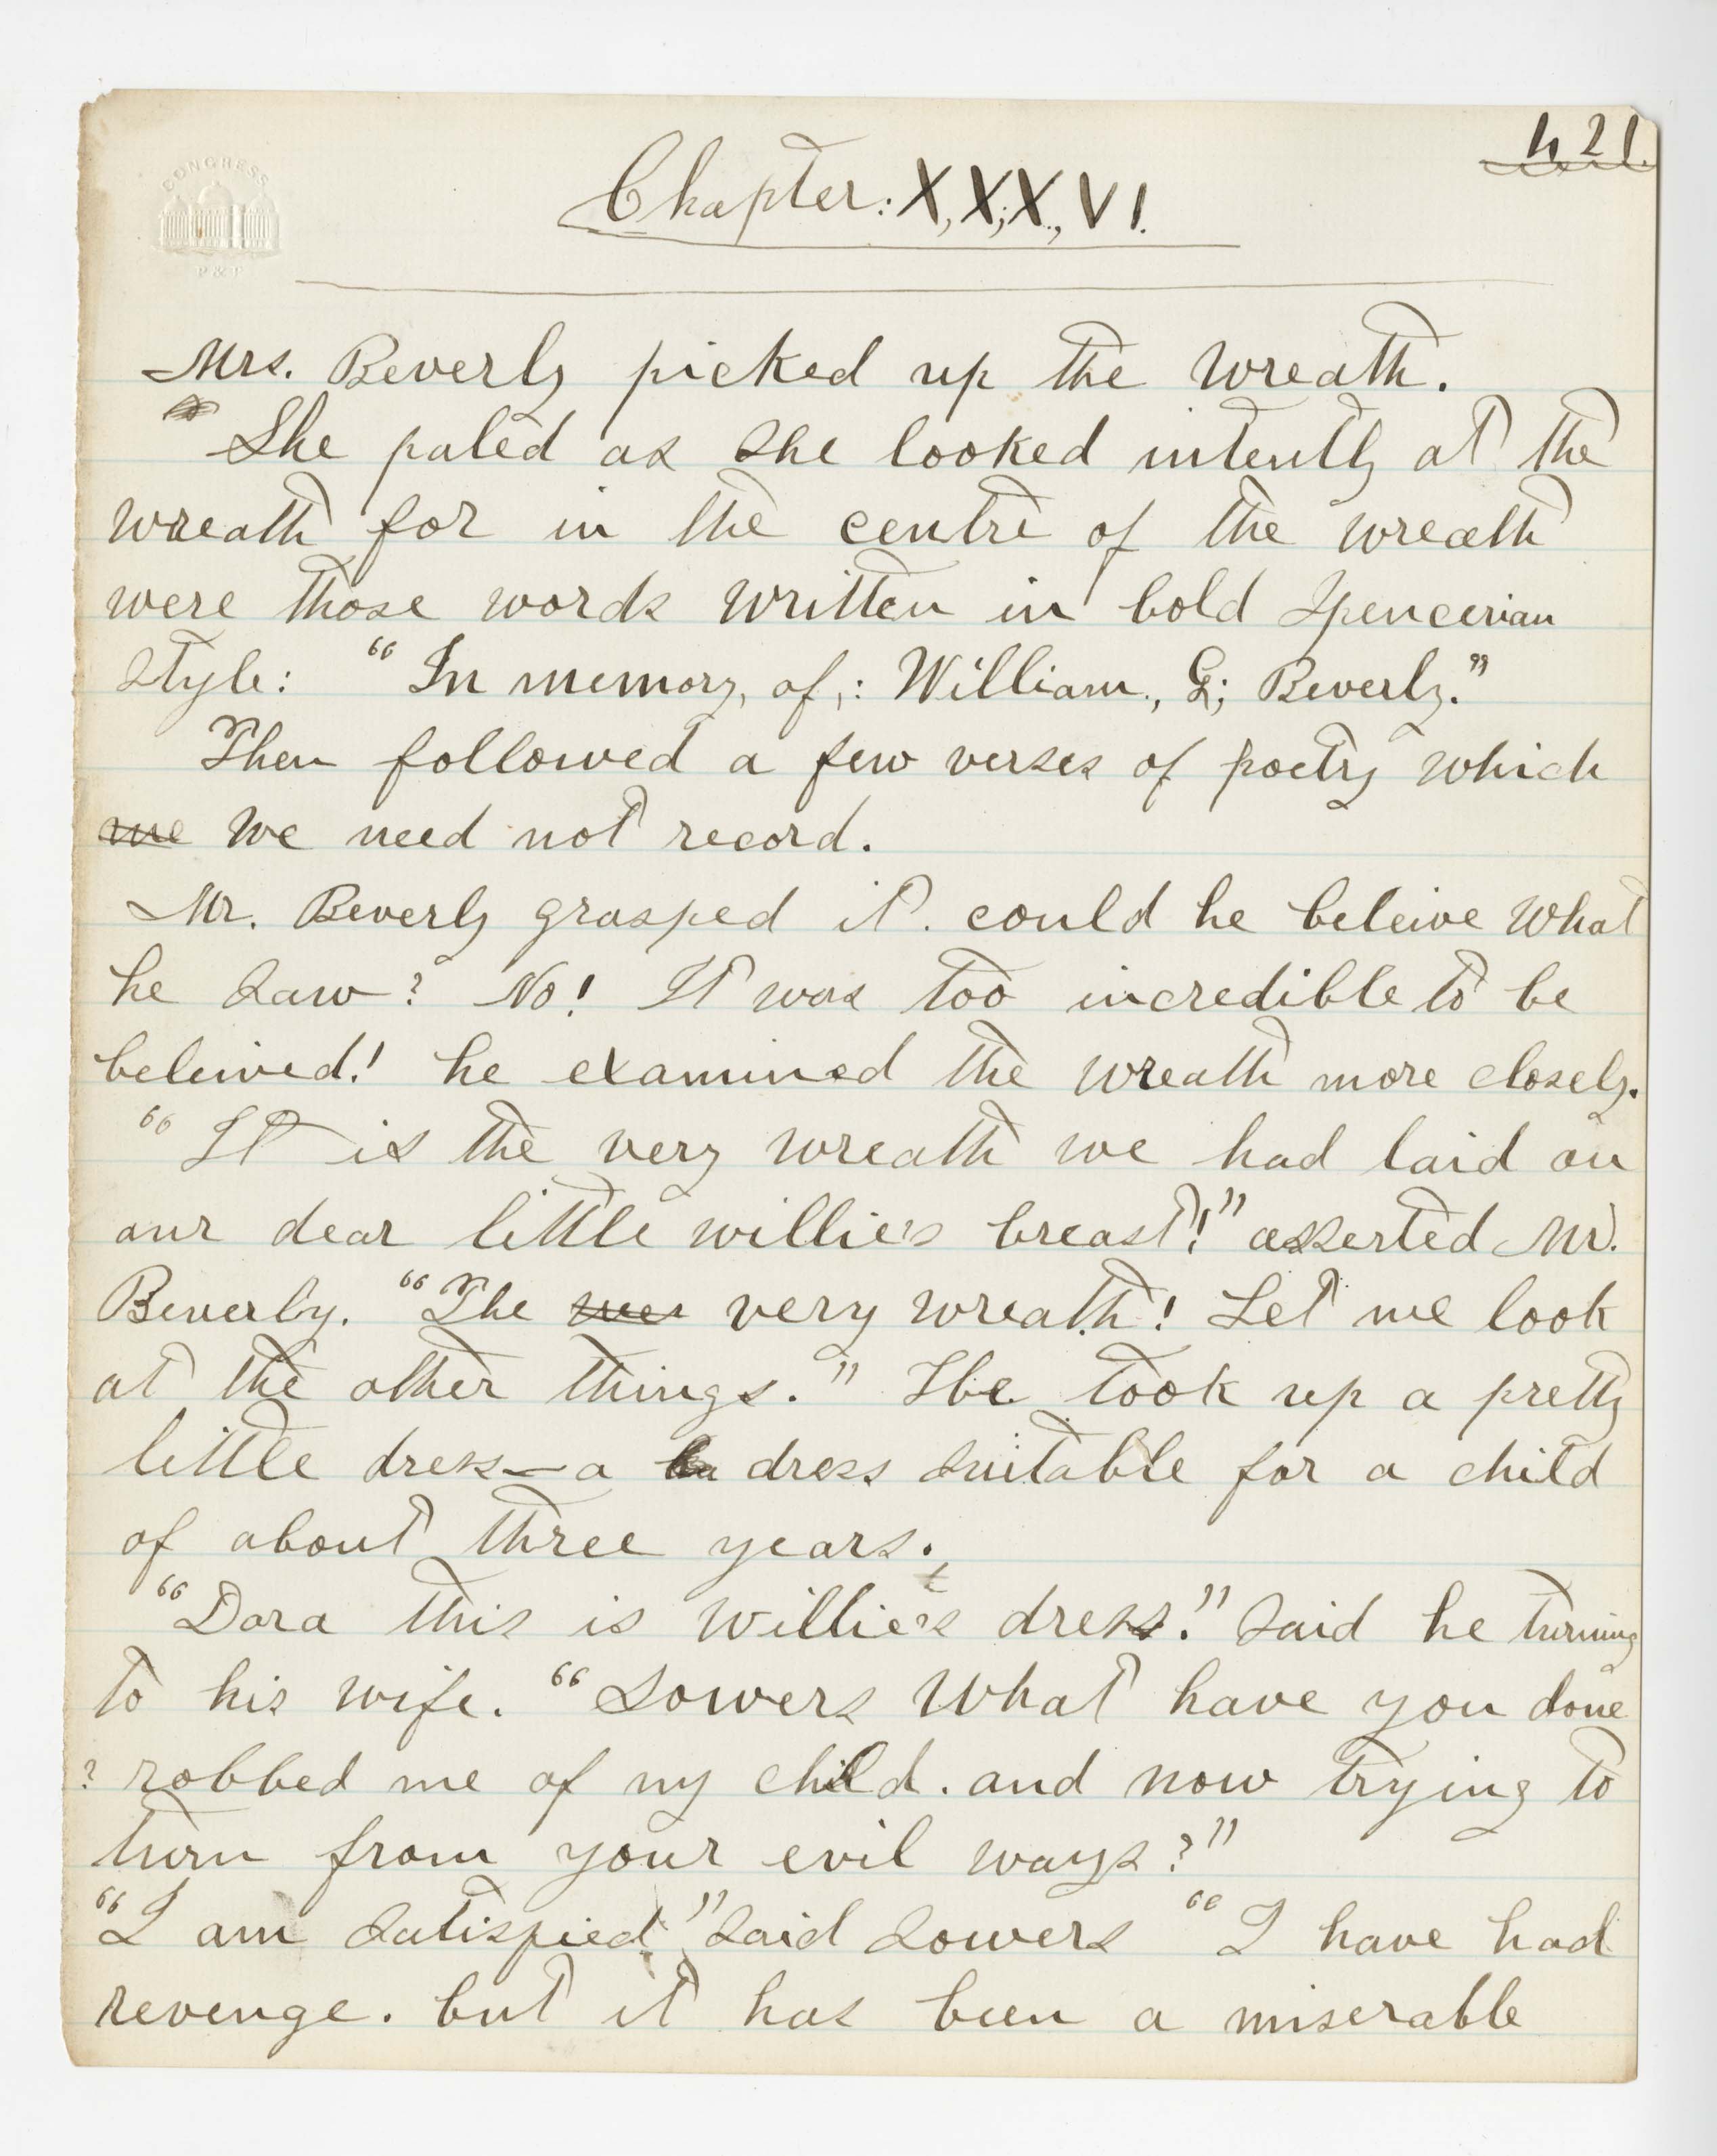 CONGRESS
P & P
421.
Chapter: X, X; X., VI.
Mrs. Beverly picked up the wreath.
She paled as she looked intently at the
wreath for in the centre of the wreath
were those words written in bold Spencerian
style: "In memory, of,: William., G; Beverly."
Then followed a few verses of poetry which
me we need not record.
Mr. Beverly grasped it. could he beleive what
he saw? No! It was too incredible to be
beleived! he examined the wreath more closely.
"It is the very wreath we had laid on
our dear little willie's breast!" asserted Mr.
Beverly. "The wer very wreath! Let me look
at the other things." He took up a pretty
little dress—a dress suitable for a child
of about three years.
"Dora this is willie's dress." said he turning
to his wife. "Sowers what have you done
? robbed me of my child. and now trying to
turn from your evil ways?"
"I am satisfied" said Sowers "I have had
revenge. but it has been a miserable